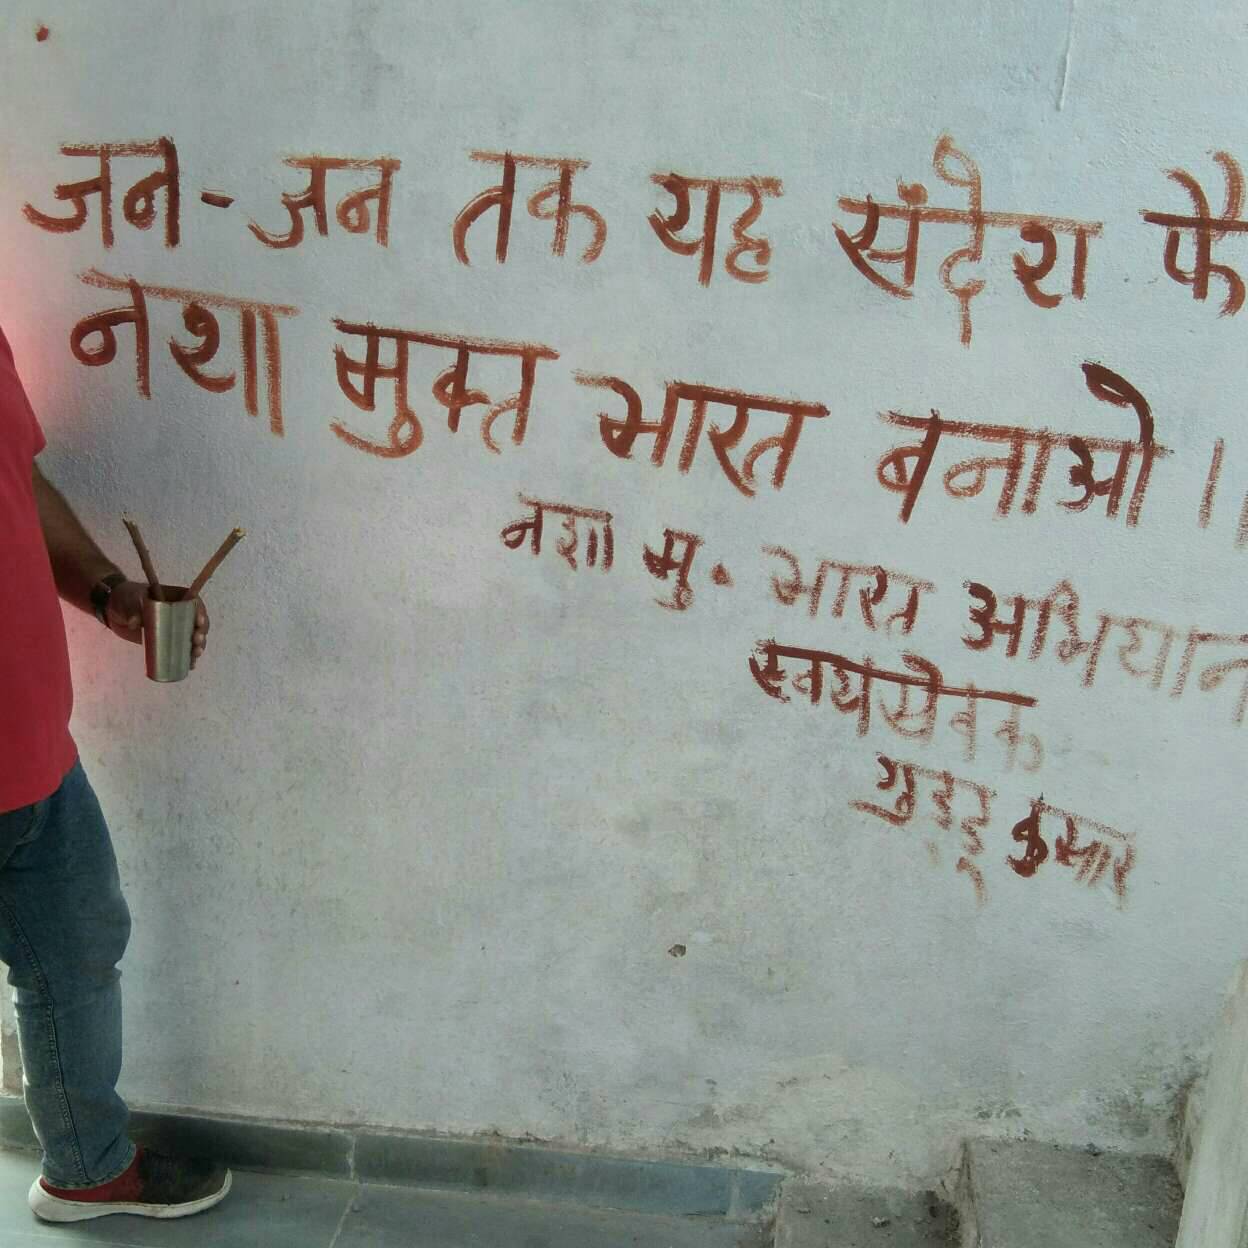 जन-जन तक यह संदेश फै
नशा मुक्त भारत बनाओ ।
नशा मु. भारत अभियान
स्वयंसेवक
गुड्डू कुमार